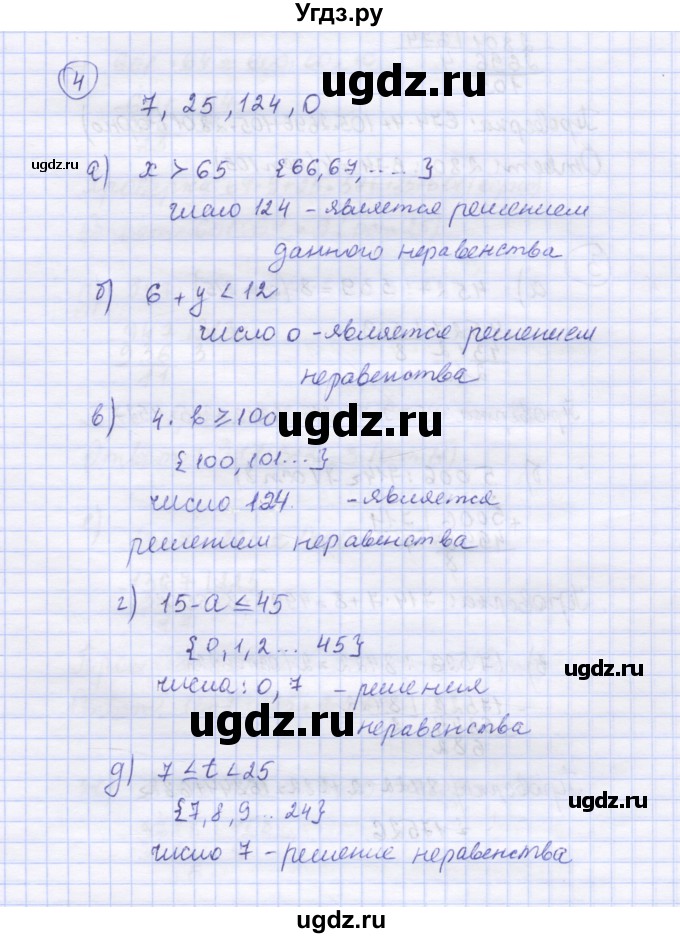 Угдз.ру
4
ugdz.ru
7, 25, 124, 0
ugdz.ru
а) x > 65 {66, 67, ..... }
ugdz.ru
число 124 - является решением
данного неравенства
б) 6 + y < 12
число 0 - является решением
неравенства
в) 4 · b ≥ 100
ugdz.ru
{100, 101...}
число 124. - является
решением неравенства
г) 15 - a ≤ 45
{0, 1, 2 ... 45}
ugdz.ru
числа: 0, 7 - решения
ugdz.ru
неравенства
д) 7 ≤ t < 25
ugdz.ru
{7, 8, 9 .. 24}
число 7 - решение неравенства
ugdz.ru